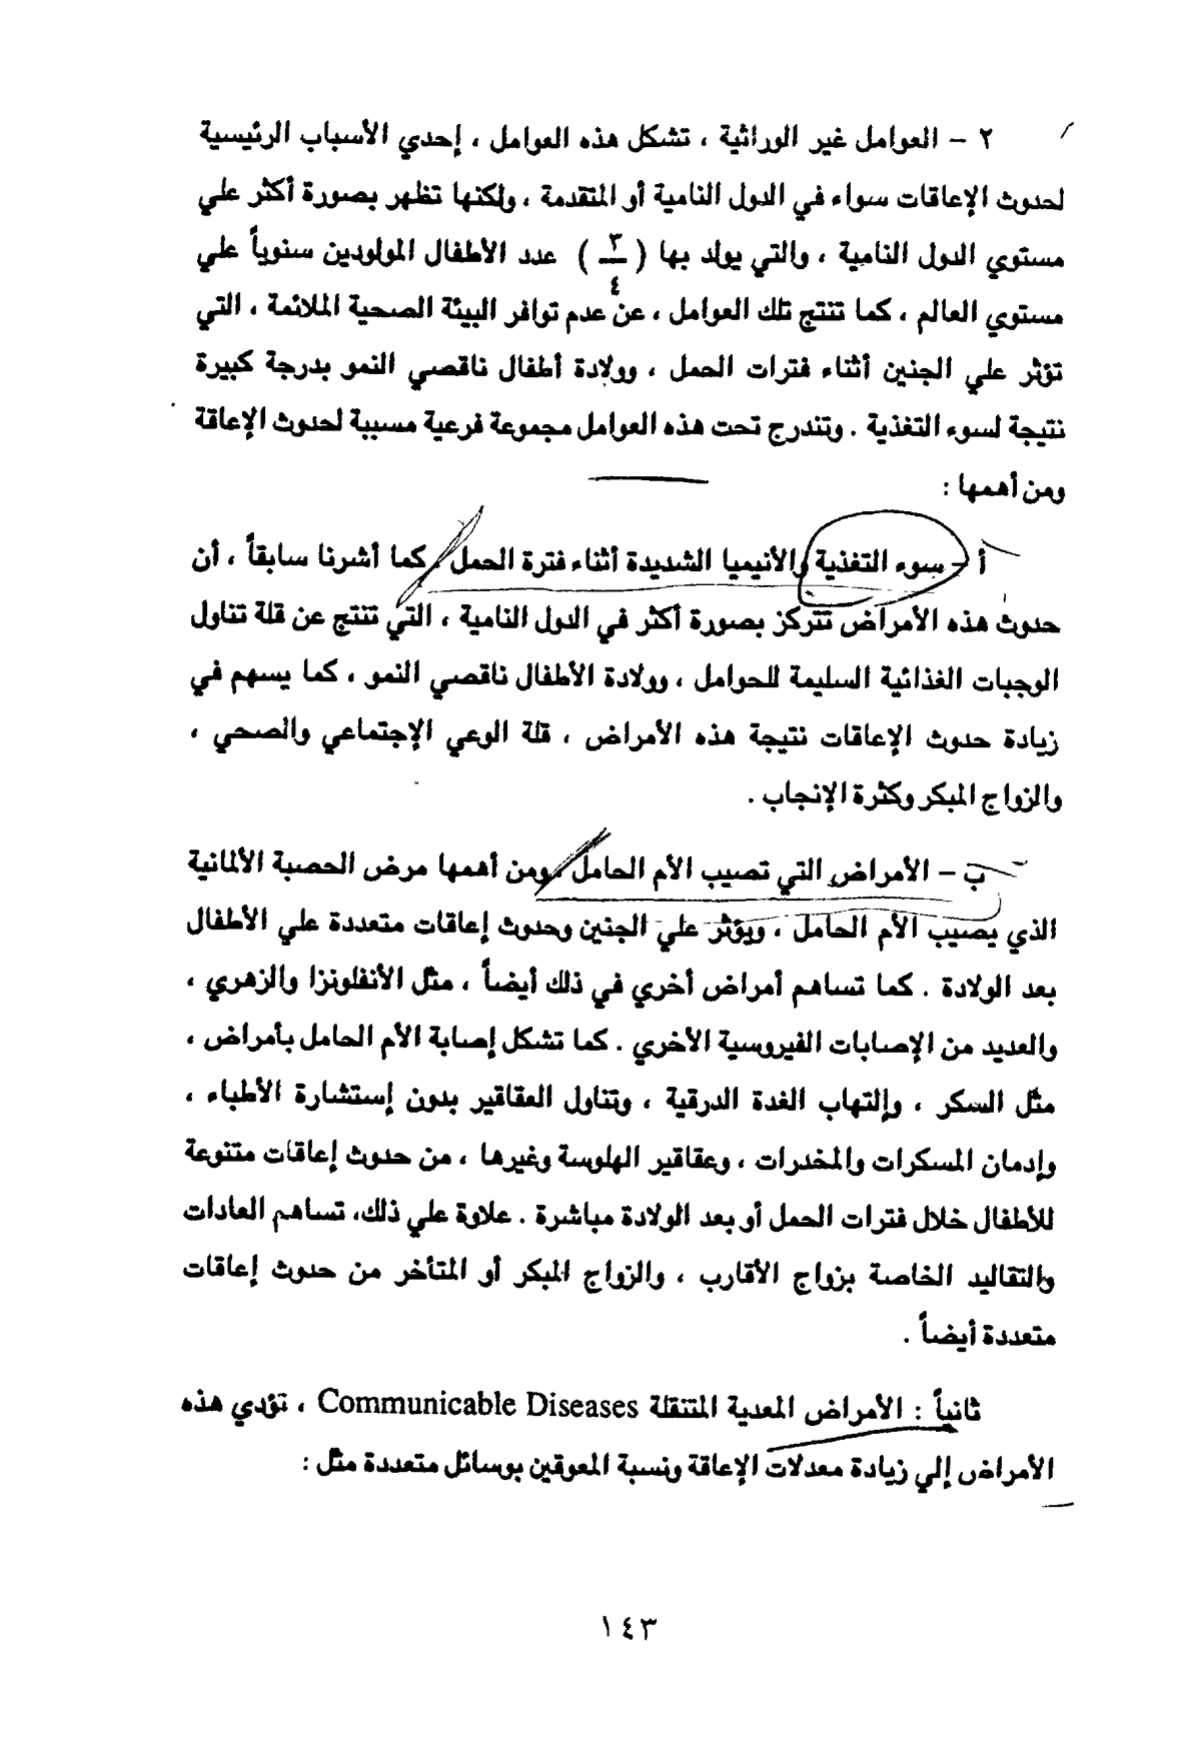 ٢ – العوامل غير الوراثية ، تشكل هذه العوامل ، إحدي الأسباب الرئيسية
لحدوث الإعاقات سواء في الدول النامية أو المتقدمة ، ولكنها تظهر بصورة أكثر علي
مستوي الدول النامية ، والتي يولد بها (٣/٤) عدد الأطفال المولودين سنوياً علي
مستوي العالم ، كما تنتج تلك العوامل ، عن عدم توافر البيئة الصحية الملائمة ، التي
تؤثر علي الجنين أثناء فترات الحمل ، وولادة أطفال ناقصي النمو بدرجة كبيرة
نتيجة لسوء التغذية . وتندرج تحت هذه العوامل مجموعة فرعية مسببة لحدوث الإعاقة
ومن أهمها :
أ – سوء التغذية والأنيميا الشديدة أثناء فترة الحمل كما أشرنا سابقاً ، أن
حدوث هذه الأمراض تتركز بصورة أكثر في الدول النامية ، التي تنتج عن قلة تناول
الوجبات الغذائية السليمة للحوامل ، وولادة الأطفال ناقصي النمو ، كما يسهم في
زيادة حدوث الإعاقات نتيجة هذه الأمراض ، قلة الوعي الإجتماعي والصحي ،
والزواج المبكر وكثرة الإنجاب .
ب – الأمراض التي تصيب الأم الحامل ومن أهمها مرض الحصبة الألمانية
الذي يصيب الأم الحامل ، ويؤثر علي الجنين وحدوث إعاقات متعددة علي الأطفال
بعد الولادة . كما تساهم أمراض أخري في ذلك أيضاً ، مثل الأنفلونزا والزهري ،
والعديد من الإصابات الفيروسية الأخري . كما تشكل إصابة الأم الحامل بأمراض ،
مثل السكر ، وإلتهاب الغدة الدرقية ، وتناول العقاقير بدون إستشارة الأطباء ،
وإدمان المسكرات والمخدرات ، وعقاقير الهلوسة وغيرها ، من حدوث إعاقات متنوعة
للأطفال خلال فترات الحمل أو بعد الولادة مباشرة . علاوة علي ذلك، تساهم العادات
والتقاليد الخاصة بزواج الأقارب ، والزواج المبكر أو المتأخر من حدوث إعاقات
متعددة أيضاً .
ثانياً : الأمراض المعدية المتنقلة Communicable Diseases ، تؤدي هذه
الأمراض إلي زيادة معدلات الإعاقة ونسبة المعوقين بوسائل متعددة مثل :
١٤٣